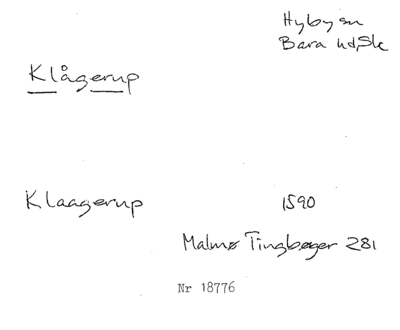 Hyby sn
Bara hd, Sk
Klågerup
Klaagerup 1590
Malmø Tingbøger 281
Nr 18776